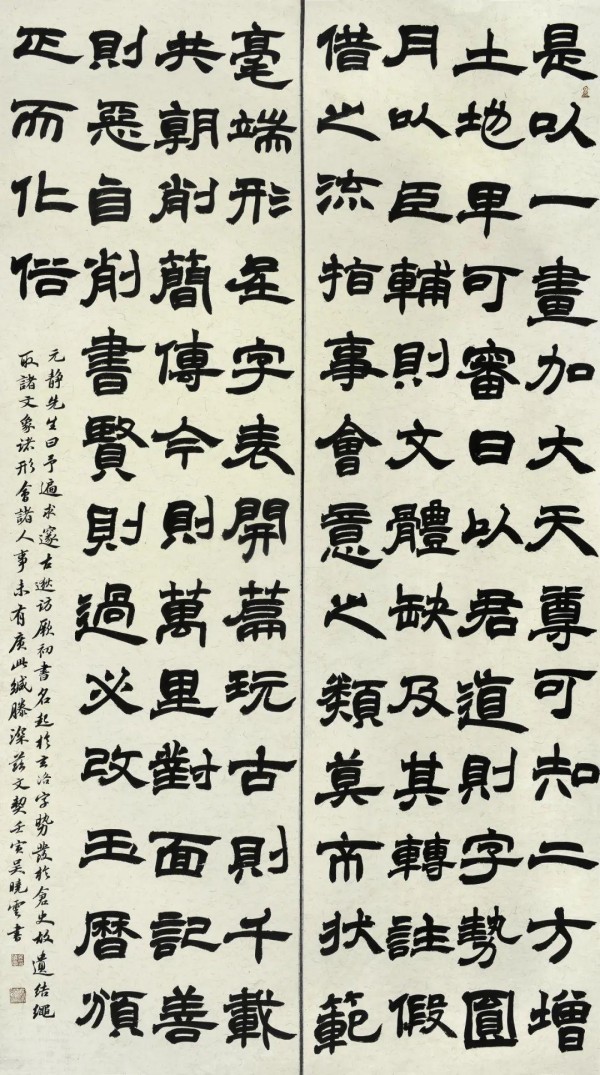 是以一畫加大天尊可知二方增
土地卑可審日以君道則字勢圓
月以臣輔則文體缺及其轉註假
借之流指事會意之類莫不狀範
毫端形呈字表開篇玩古則千載
共朝削簡傳今則萬里對面記善
則惡自削書賢則過必改玉曆頒
正而化俗
元静先生曰予遍求邃古逖访厥初書名起於玄洛字勢發於倉史故遺結繩
取諸文象諸形會諸人事未有廣此緘縢深茲文契壬寅吴曉雲書